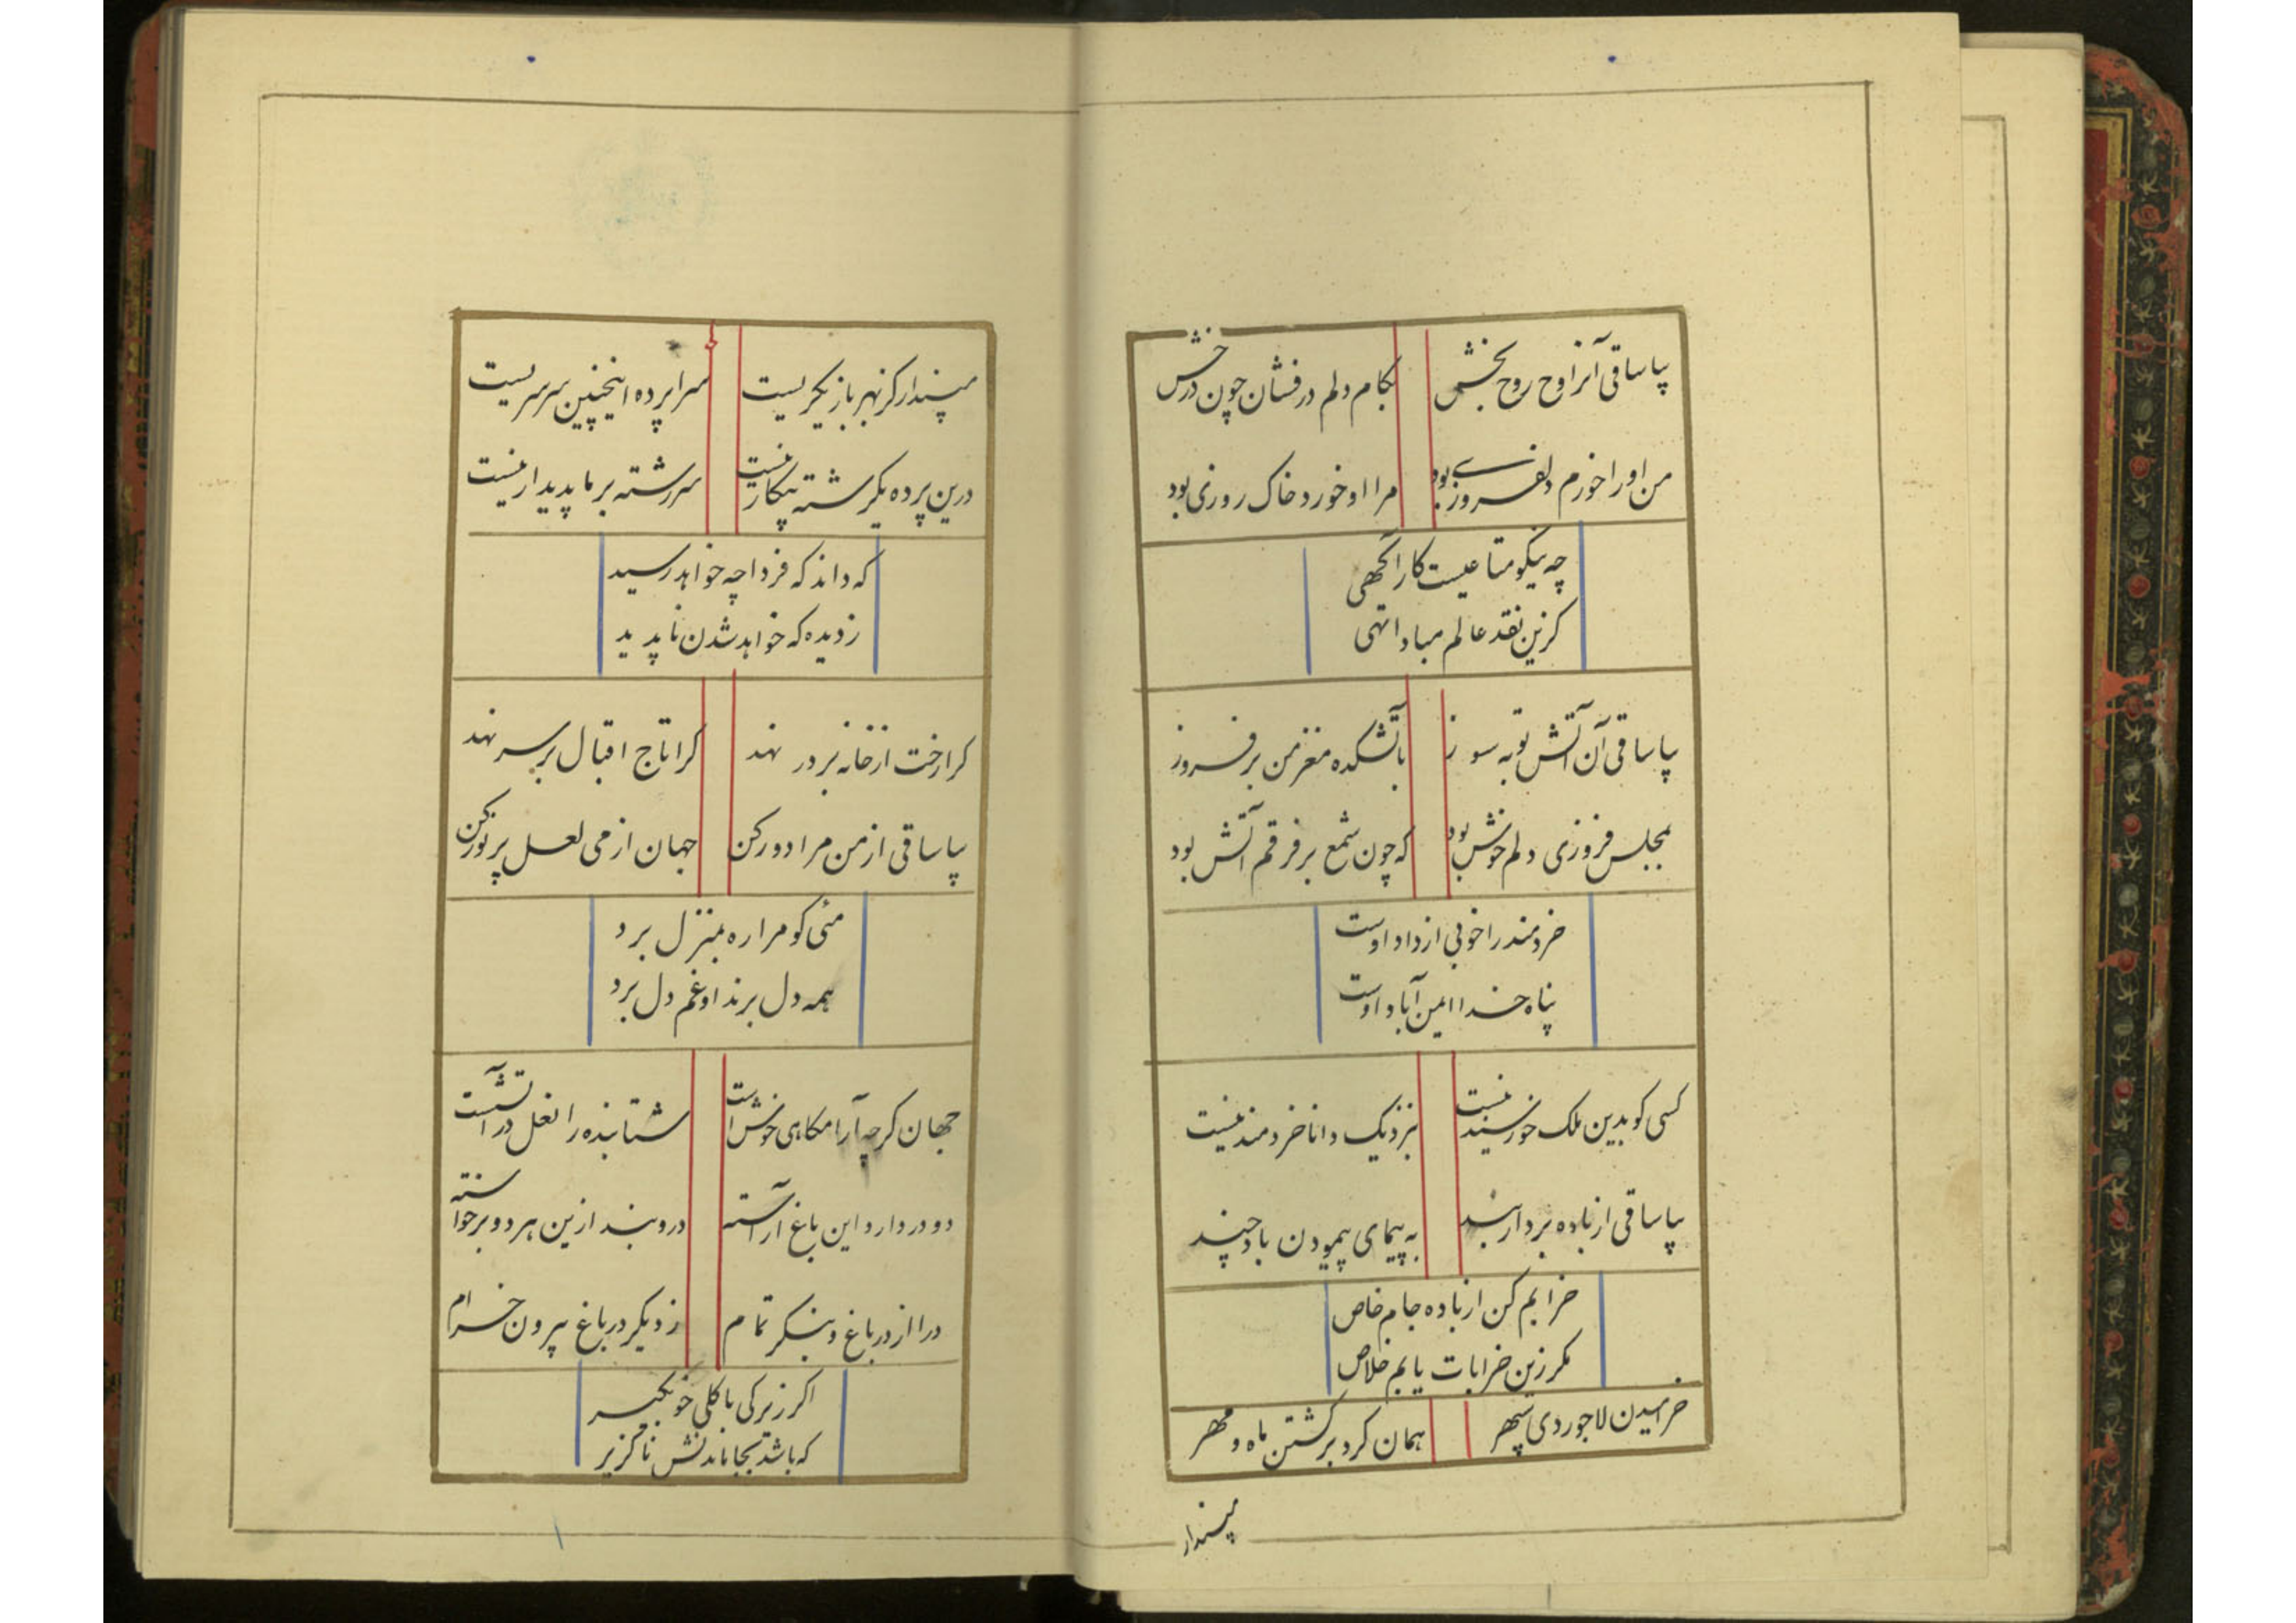 بیا ساقی آن راوح روح بخش
بکام دلم درفشان چون درخش
من او را خورم دلفروزی بود
مرا او خورد خاک روزی بود
چه نیکو متاعیست کار آگهی
کزین نقد عالم مبادا تهی
بیا ساقی آن آتش توبه سوز
بآتشکده مغز من برفروز
بمجلس فروزی دلم خوش بود
که چون شمع بر فرقم آتش بود
خردمند را خوبی از داد اوست
پناه خدا ایمن آباد اوست
کسی کو بدین ملک خورسند نیست
بنزدیک دانا خردمند نیست
بیا ساقی از باده بردار بند
به پیمای پیمودن باد چند
خرابم کن از باده جام خاص
مکر زین خرابات یابم خلاص
خرامیدن لاجوردی سپهر
همان کرد برکشتن ماه و مهر
مپندار
مپندار کز بهر بازیکریست
سراپرده اینچنین سرسریست
درین پرده یکرشته بیکار نیست
سررشته بر ما پدیدار نیست
که داند که فردا چه خواهد رسید
ز دیده که خواهد شدن ناپدید
کرا رخت از خانه بر در نهد
کرا تاج اقبال بر سر نهد
بیا ساقی از من مرا دور کن
جهان از می لعل پر نور کن
مئی کو مرا ره بمنزل برد
همه دل برند او غم دل برد
جهان کرچه آرامکاهی خوش است
شتابنده را نعل در آتش است
دو در دارد این باغ آراسته
در و بند ازین هر دو برخواسته
درا از در باغ و بنکر تمام
ز دیکر در باغ بیرون خرام
اکر زیرکی با کلی خو مکیر
که باشد بجا ماندنش ناکزیر